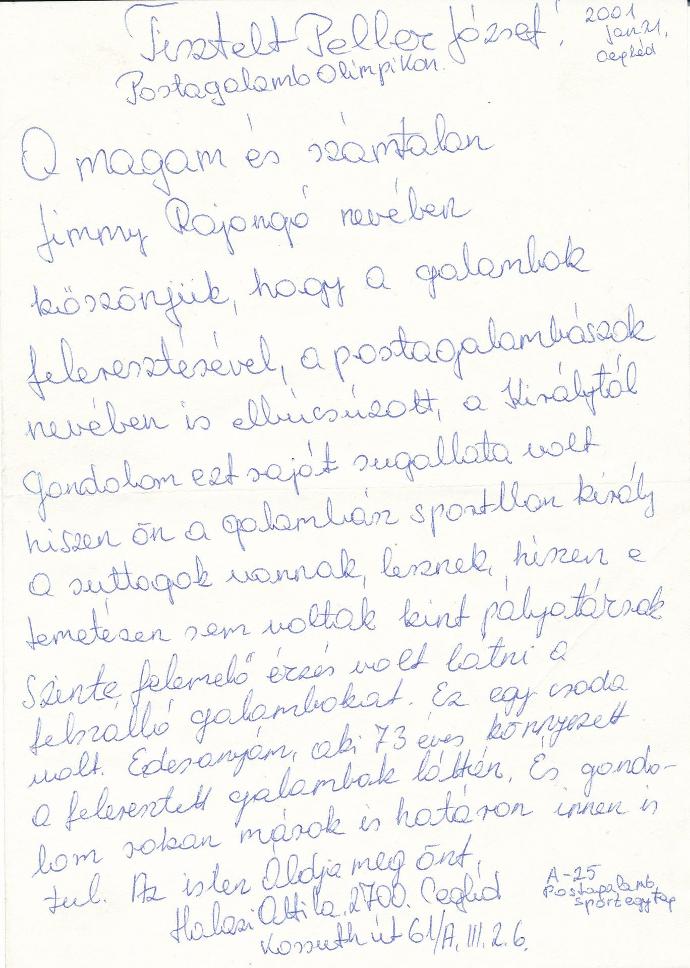 Tisztelt Peller József!
2001
jan 21,
Cegléd
Postagalamb Olimpikon.
A magam és számtalan
Jimmy Rajongó nevében
köszönjük, hogy a galambok
feleresztésével, a postagalambászok
nevében is elbúcsúzott, a Királytól
Gondolom ezt saját sugallata volt
hiszen ön a galambász sportban király
A suttogok vannak, lesznek, hiszen e
temetésen sem voltak kint pályatársak
Szinte felemelő érzés volt látni a
felszálló galambokat. Ez egy csoda
volt. Édesanyám, aki 73 éves könnyezett
a feleresztett galambok láttán. És gondo-
lom sokan mások is határon innen is
tul. Az isten Áldja meg önt,
Halasi Attila. 2700. Cegléd
Kossuth út 61/A. III. 2. 6.
A-25
Postagalamb,
sportegy tag